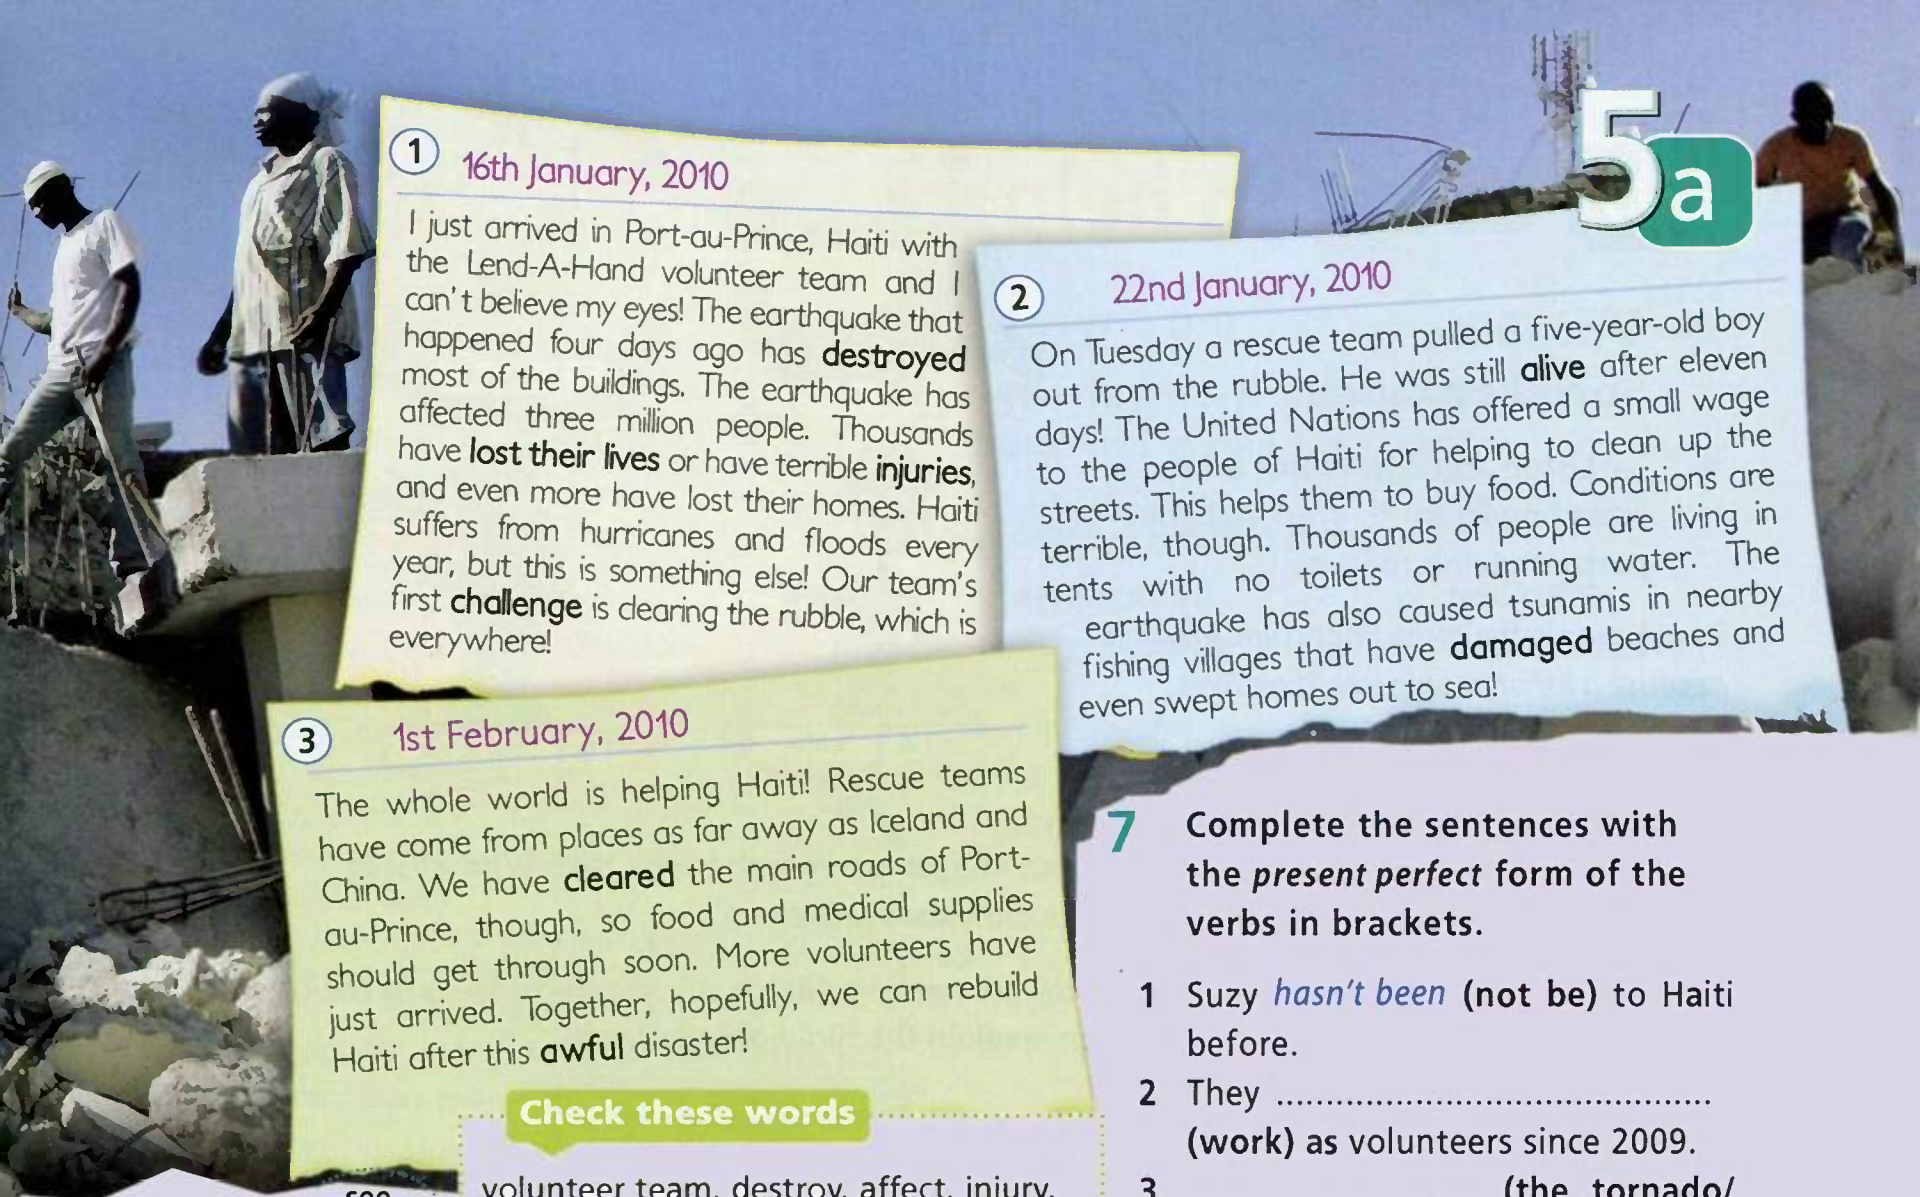 5a
1
16th January, 2010
I just arrived in Port-au-Prince, Haiti with
the Lend-A-Hand volunteer team and I
can't believe my eyes! The earthquake that
happened four days ago has destroyed
most of the buildings. The earthquake has
affected three million people. Thousands
have lost their lives or have terrible injuries,
and even more have lost their homes. Haiti
suffers from hurricanes and floods every
year, but this is something else! Our team's
first challenge is clearing the rubble, which is
everywhere!
2
22nd January, 2010
On Tuesday a rescue team pulled a five-year-old boy
out from the rubble. He was still alive after eleven
days! The United Nations has offered a small wage
to the people of Haiti for helping to clean up the
streets. This helps them to buy food. Conditions are
terrible, though. Thousands of people are living in
tents with no toilets or running water. The
earthquake has also caused tsunamis in nearby
fishing villages that have damaged beaches and
even swept homes out to sea!
3
1st February, 2010
The whole world is helping Haiti! Rescue teams
have come from places as far away as Iceland and
China. We have cleared the main roads of Port-
au-Prince, though, so food and medical supplies
should get through soon. More volunteers have
just arrived. Together, hopefully, we can rebuild
Haiti after this awful disaster!
Check these words
volunteer team, destroy, affect, injury,
7 Complete the sentences with
the present perfect form of the
verbs in brackets.
1 Suzy hasn't been (not be) to Haiti
before.
2 They ..........................................
(work) as volunteers since 2009.
3 (the tornado/